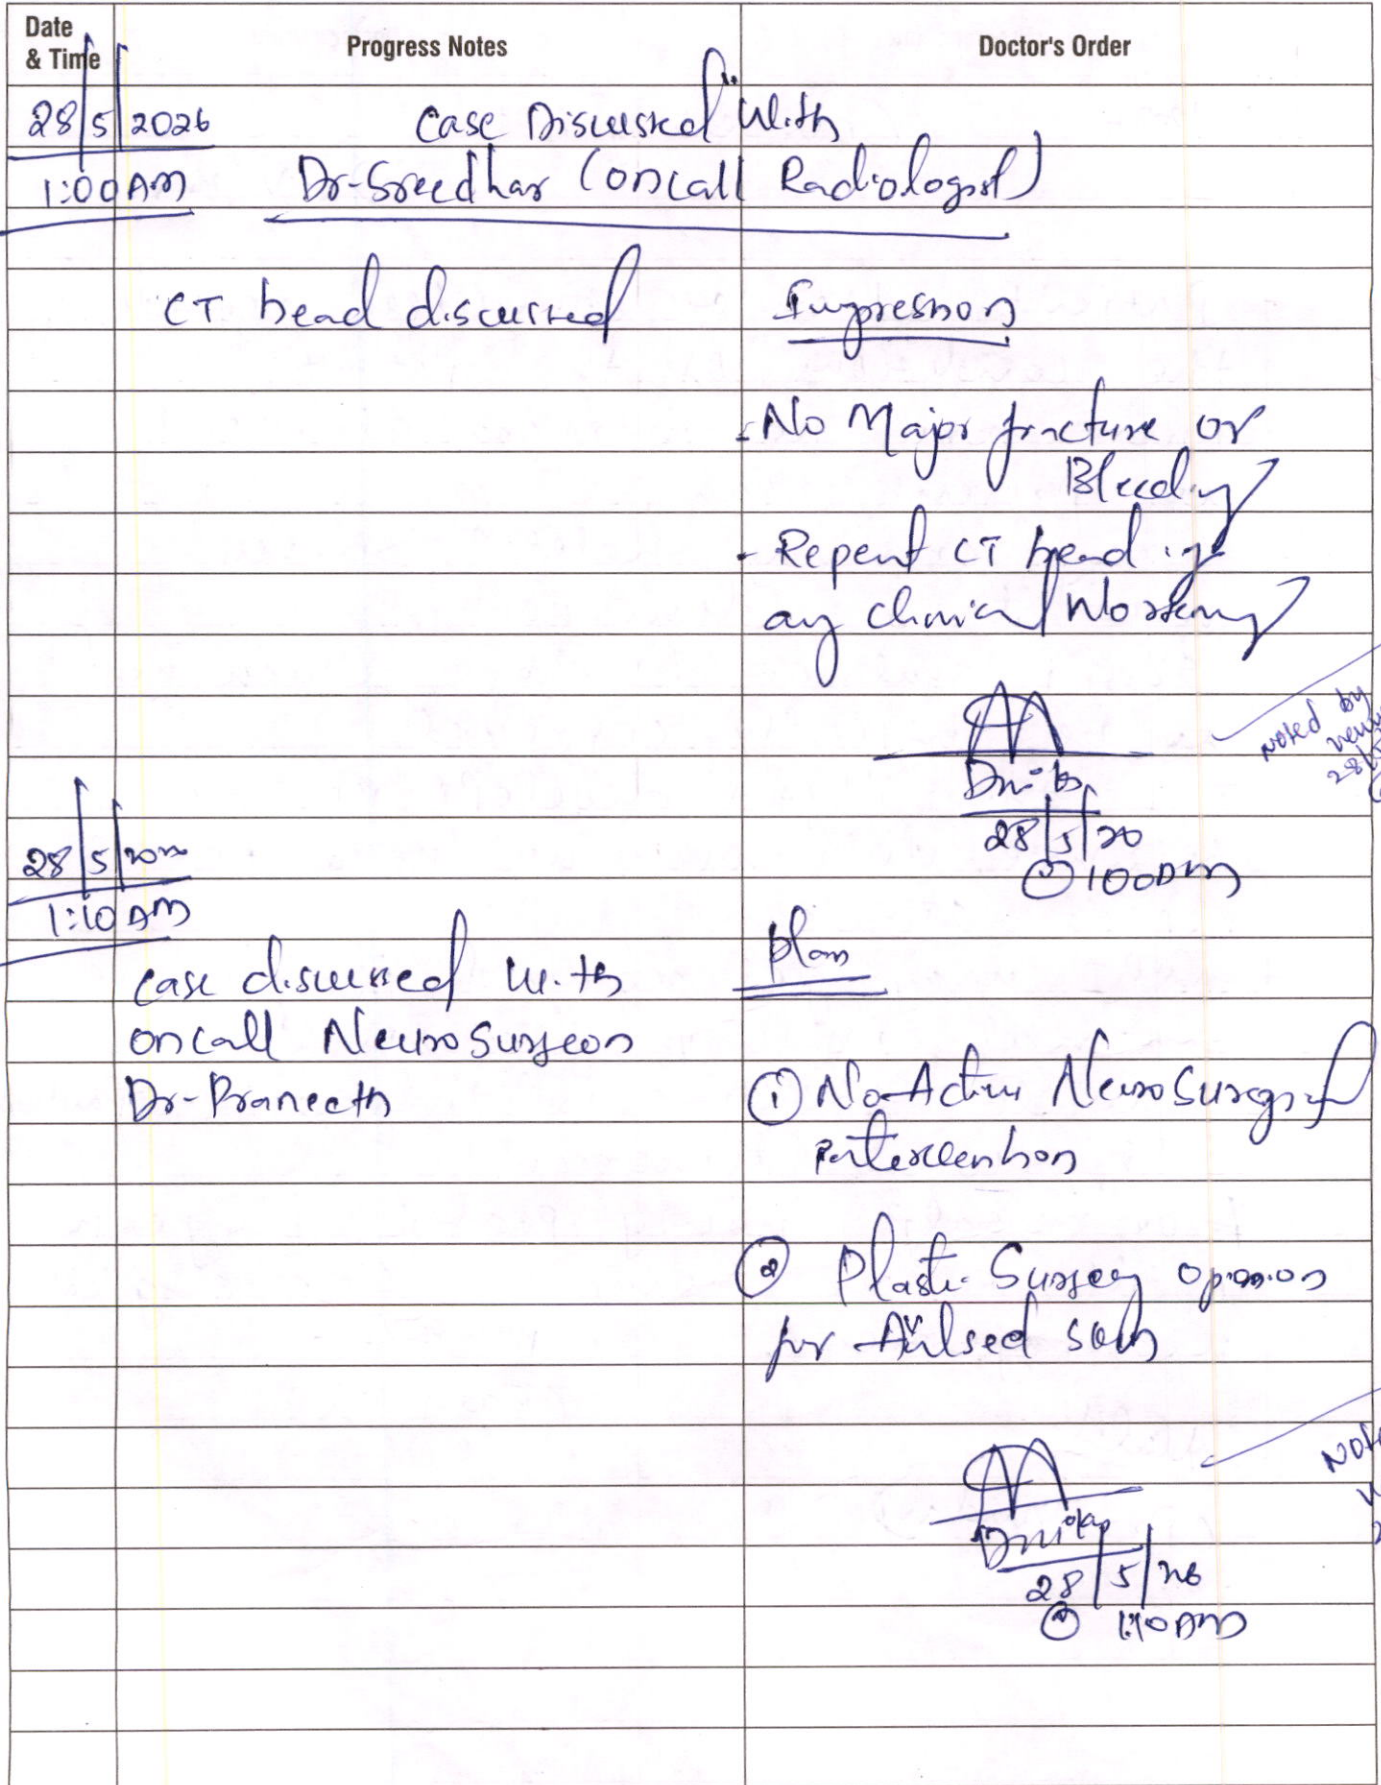 Date & Time
Progress Notes
Doctor's Order
28/5/2026
Case Discussed With
1:00 AM
Dr-Sreedhar (oncall Radiologist)
CT head discussed
Impression
- No Major fracture or
Bleeding
- Repeat CT head if
any clinical Worsening
Noted by
28/5
28/5/20
@ 100AM
28/5/20
1:10 AM
Case discussed with
oncall NeuroSurgeon
Dr-Praneeth
Plan
① No-Active NeuroSurgical
Intervention
② Plastic Surgery opinion
for Avulsed skin
28/5/26
@ 1:10 AM